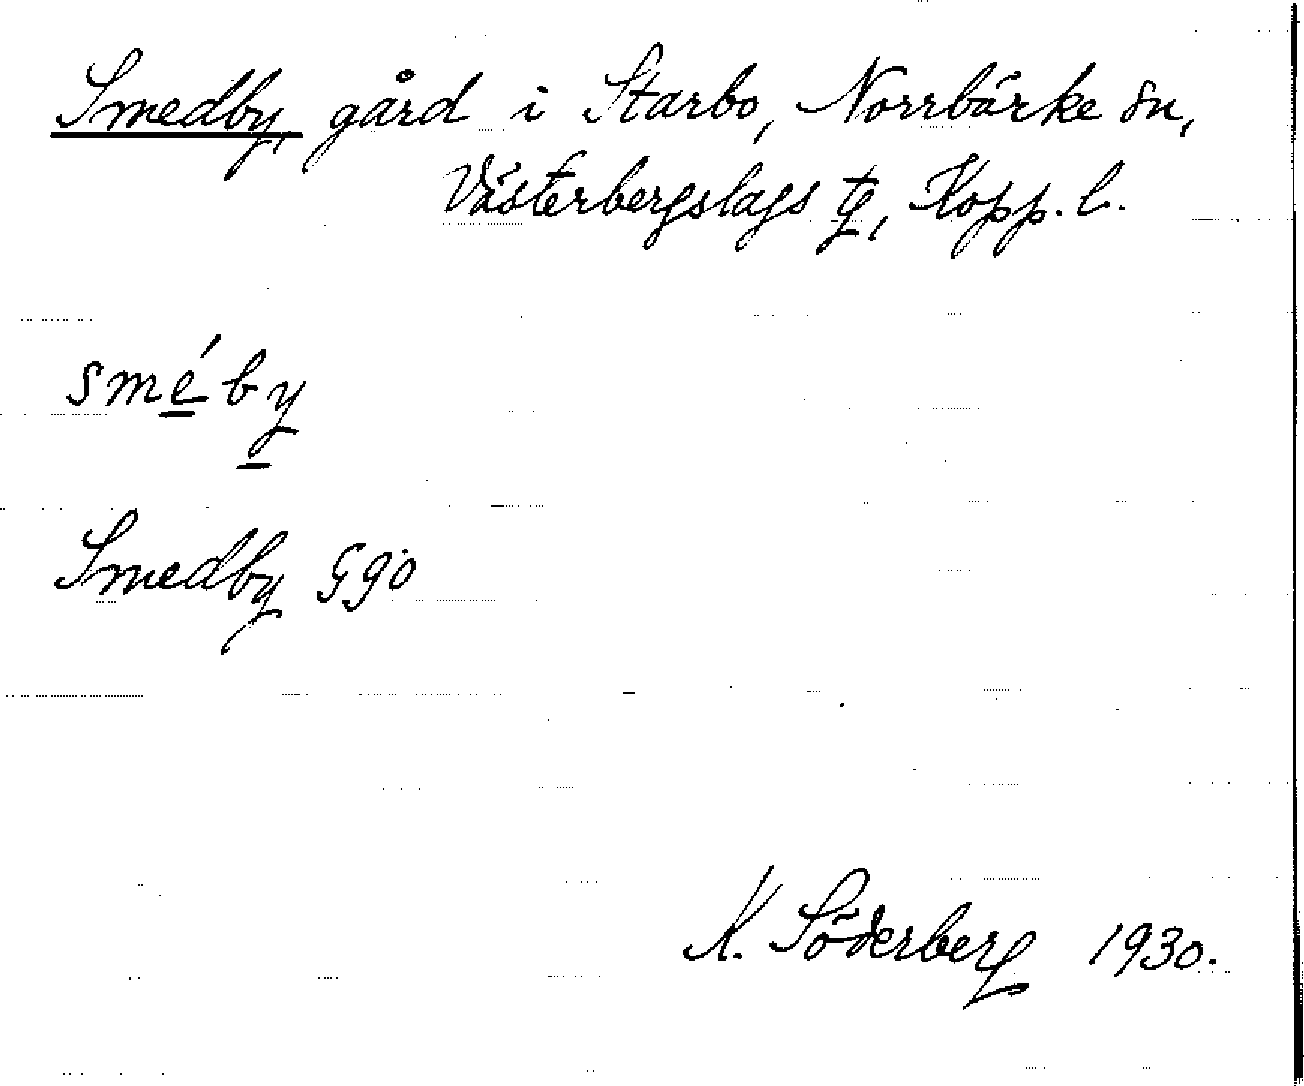 Smedby, gård i Starbo, Norrbärke sn,
Västerbergslags tg, Kopp. l.
sméby
Smedby Ggo
K. Söderberg 1930.